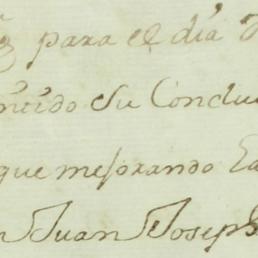 para el dia
su Condu
que mejorando
Juan Joseph